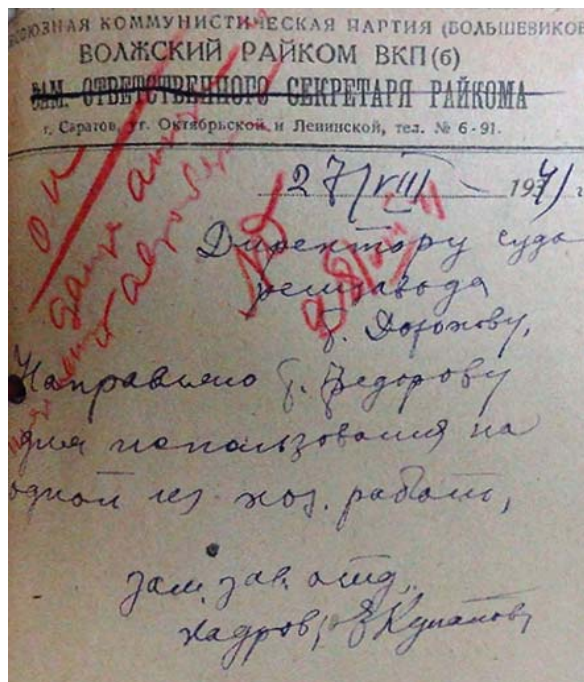 СОЮЗНАЯ КОММУНИСТИЧЕСКАЯ ПАРТИЯ (БОЛЬШЕВИКОВ
ВОЛЖСКИЙ РАЙКОМ ВКП(б)
ЗАМ. ОТВЕТСТВЕННОГО СЕКРЕТАРЯ РАЙКОМА
г. Саратов, уг. Октябрьской и Ленинской, тел. № 6-91.
27/VIII 1941 г.
Директору судо
ремзавода
т. Дорохову,
Направляю т. Федорову
для использования на
одной из хоз. работ,
Зам. зав. отд.
кадров